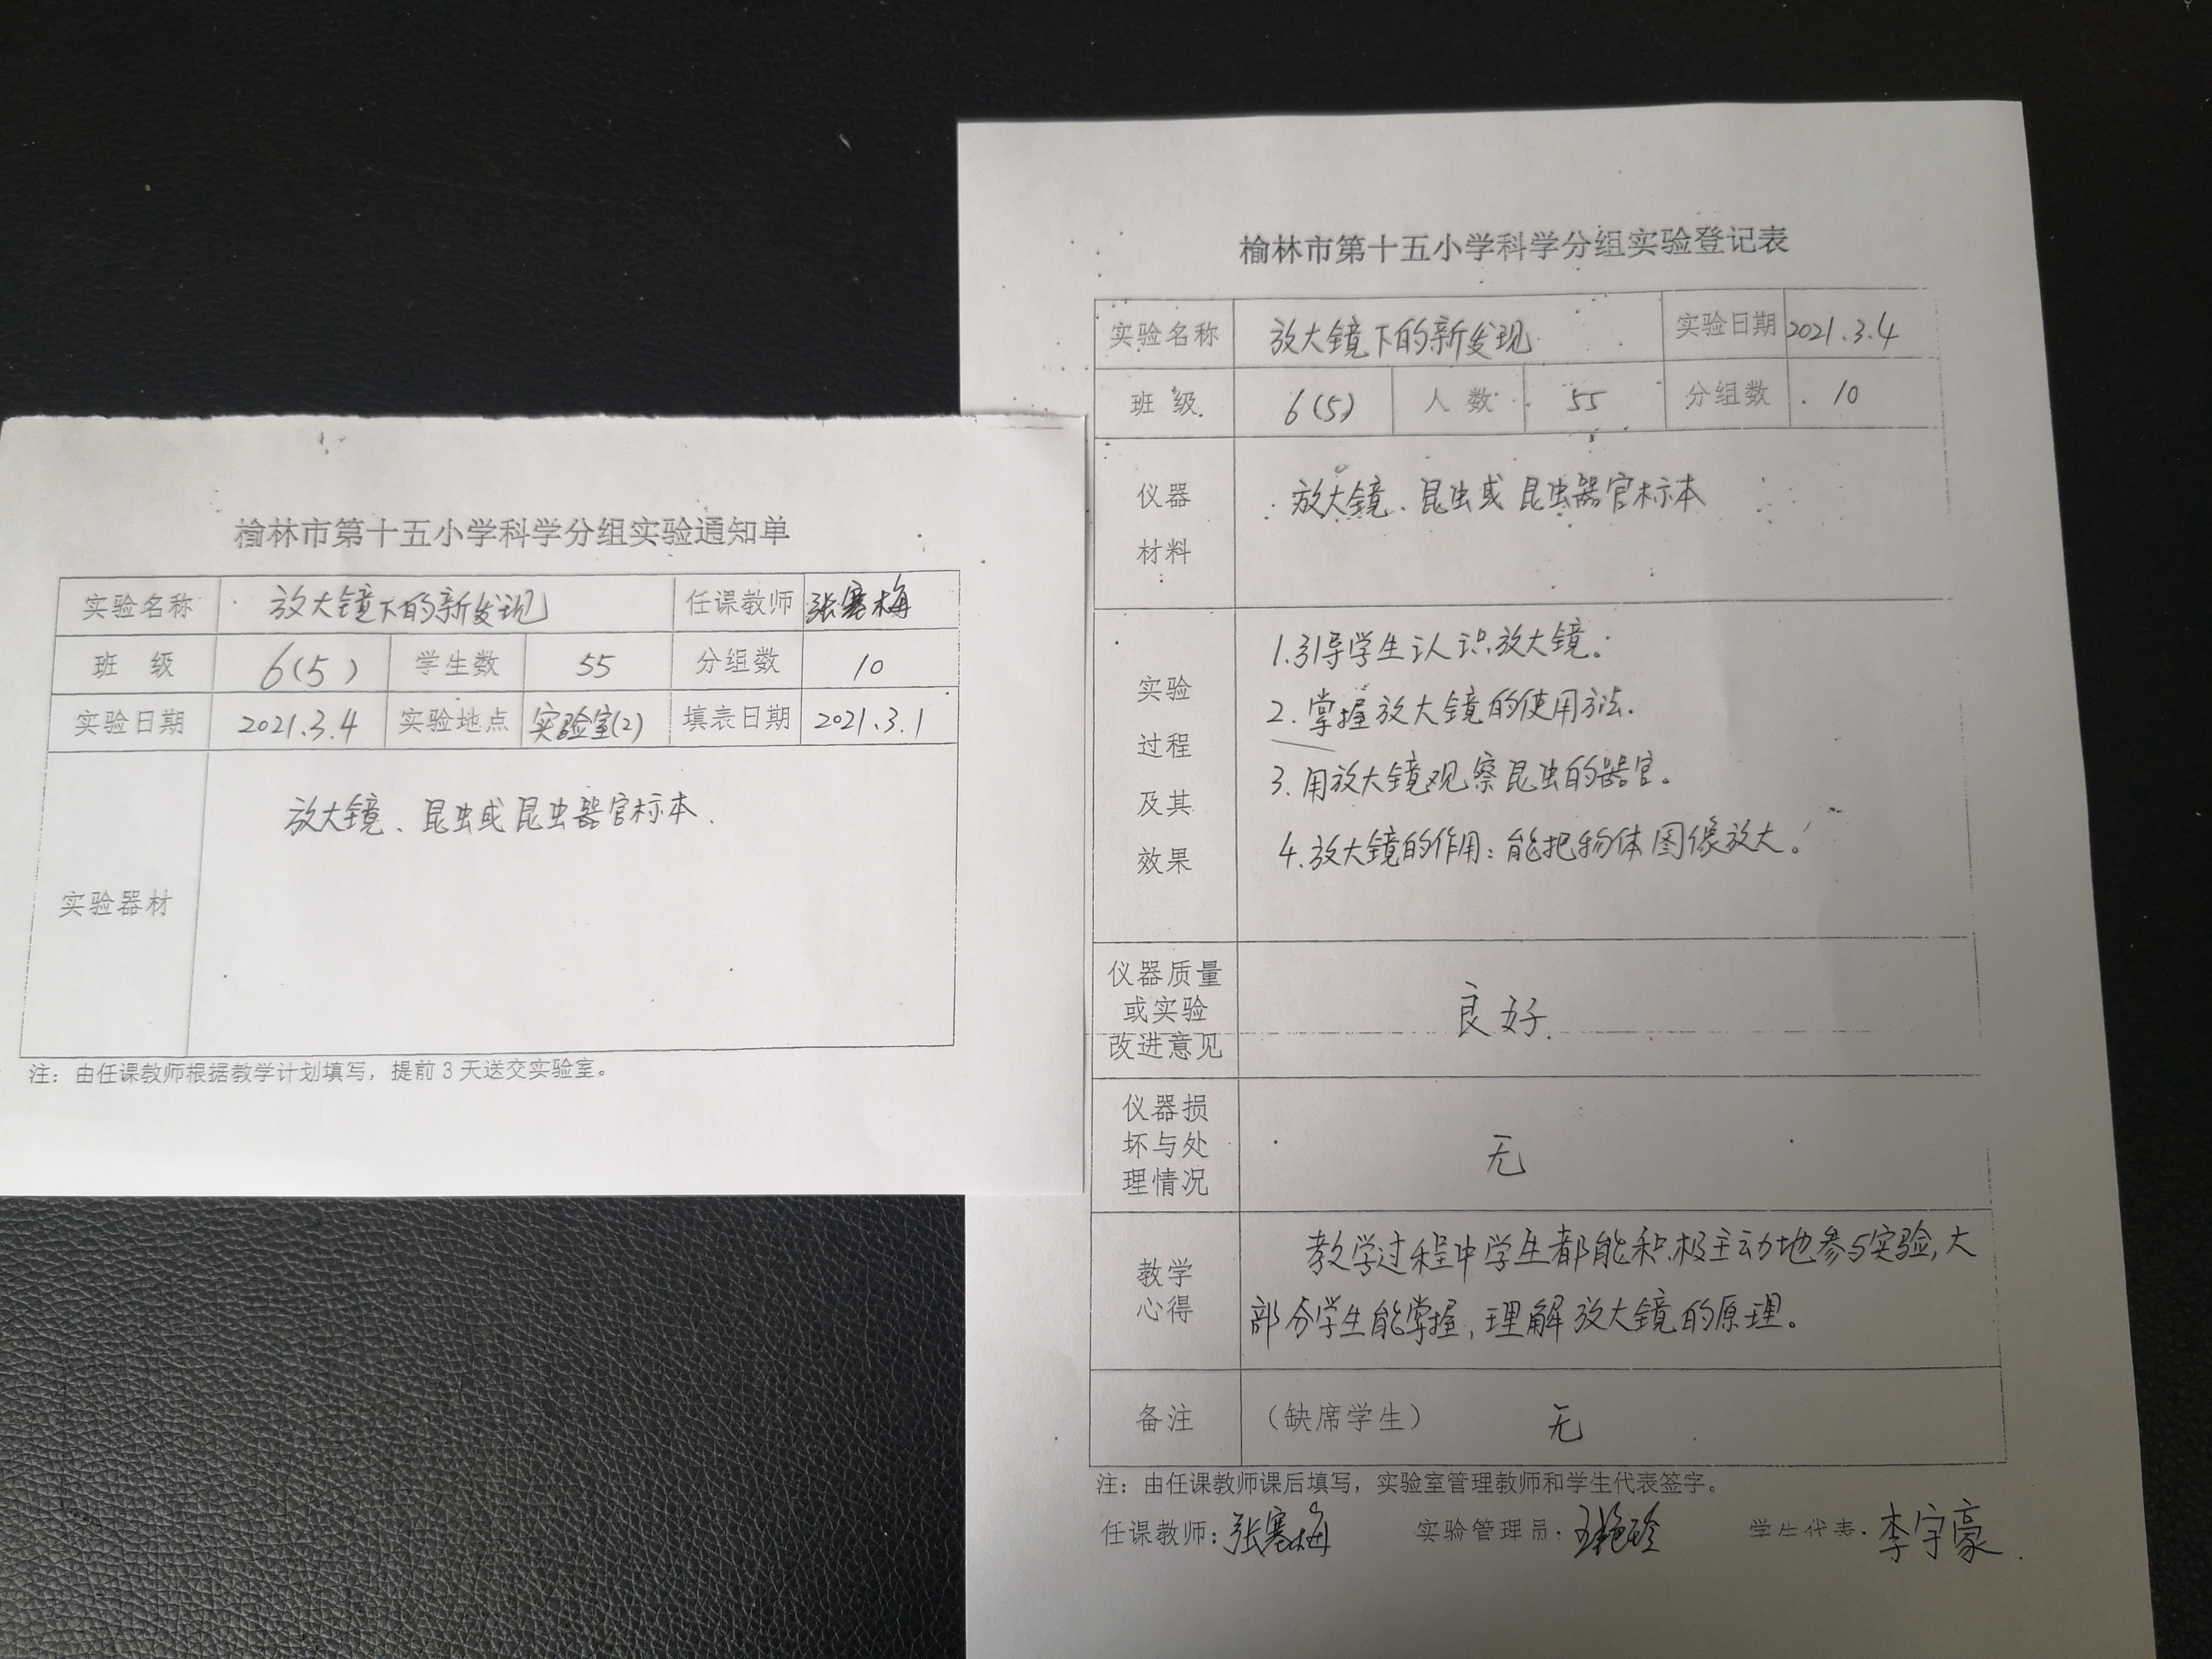 榆林市第十五小学科学分组实验通知单
实验名称 放大镜下的新发现 任课教师 张塞梅
班 级 6(5) 学生数 55 分组数 10
实验日期 2021.3.4 实验地点 实验室(2) 填表日期 2021.3.1
实验器材 放大镜、昆虫或昆虫器官标本.
注：由任课教师根据教学计划填写，提前3天送交实验室。
榆林市第十五小学科学分组实验登记表
实验名称 放大镜下的新发现 实验日期 2021.3.4
班 级 6(5) 人 数 55 分组数 10
仪器
材料
放大镜、昆虫或昆虫器官标本
实验
过程
及其
效果
1.引导学生认识放大镜。
2.掌握放大镜的使用方法.
3.用放大镜观察昆虫的器官。
4.放大镜的作用：能把物体图像放大。
仪器质量
或实验
改进意见
良好.
仪器损
坏与处
理情况
无
教学
心得
教学过程中学生都能积极主动地参与实验,大
部分学生能掌握,理解放大镜的原理。
备注 （缺席学生） 无
注：由任课教师课后填写，实验室管理教师和学生代表签字。
任课教师：张塞梅 实验管理员：王艳玲 学生代表：李宇豪.